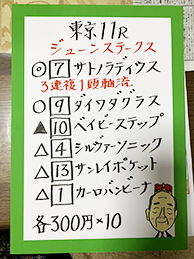 東京11R
ジューンステークス
◎ 7 サトノラディウス
3連複1頭軸流
○ 9 ダイワダグラス
▲ 10 ベイビーステップ
△ 4 シルヴァーソニック
△ 13 サンレイポケット
△ 1 カーロバンビーナ
各300円×10